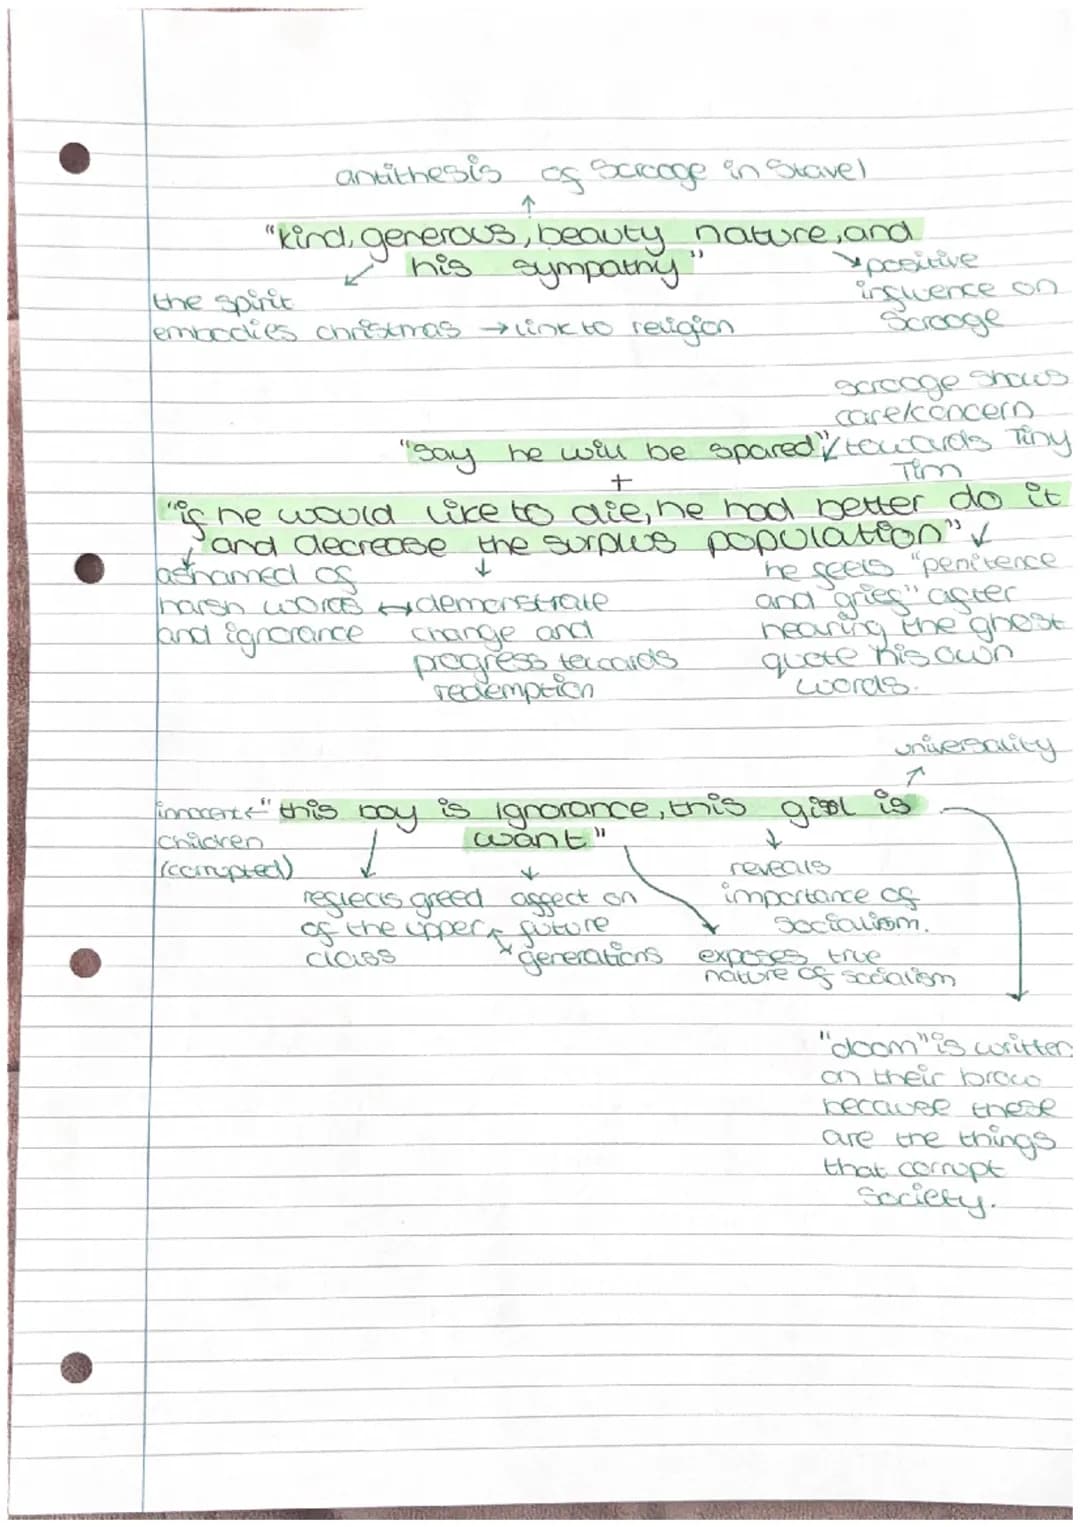 antithesis of Scrooge in Stave 1
"kind, generous, beauty nature, and
his sympathy"
positive
influence on
Scrooge
the spirit
embodies christmas → link to religion
scrooge shows
care/concern
towards Tiny
Tim
"say he will be spared"
+
"if he would like to die, he had better do it
and decrease the surplus population"
ashamed of
harsh words
and ignorance
demonstrate
change and
progress towards
redemption
he feels "penitence
and grief" after
hearing the ghost
quote his own
words.
universality
innocent
children
(corrupted)
"this boy is ignorance, this girl is
want"
reflects greed
of the upper
class
affect on
future
generations
reveals
importance of
socialism.
exposes true
nature of socialism
"doom" is written
on their brow
because these
are the things
that corrupt
society.